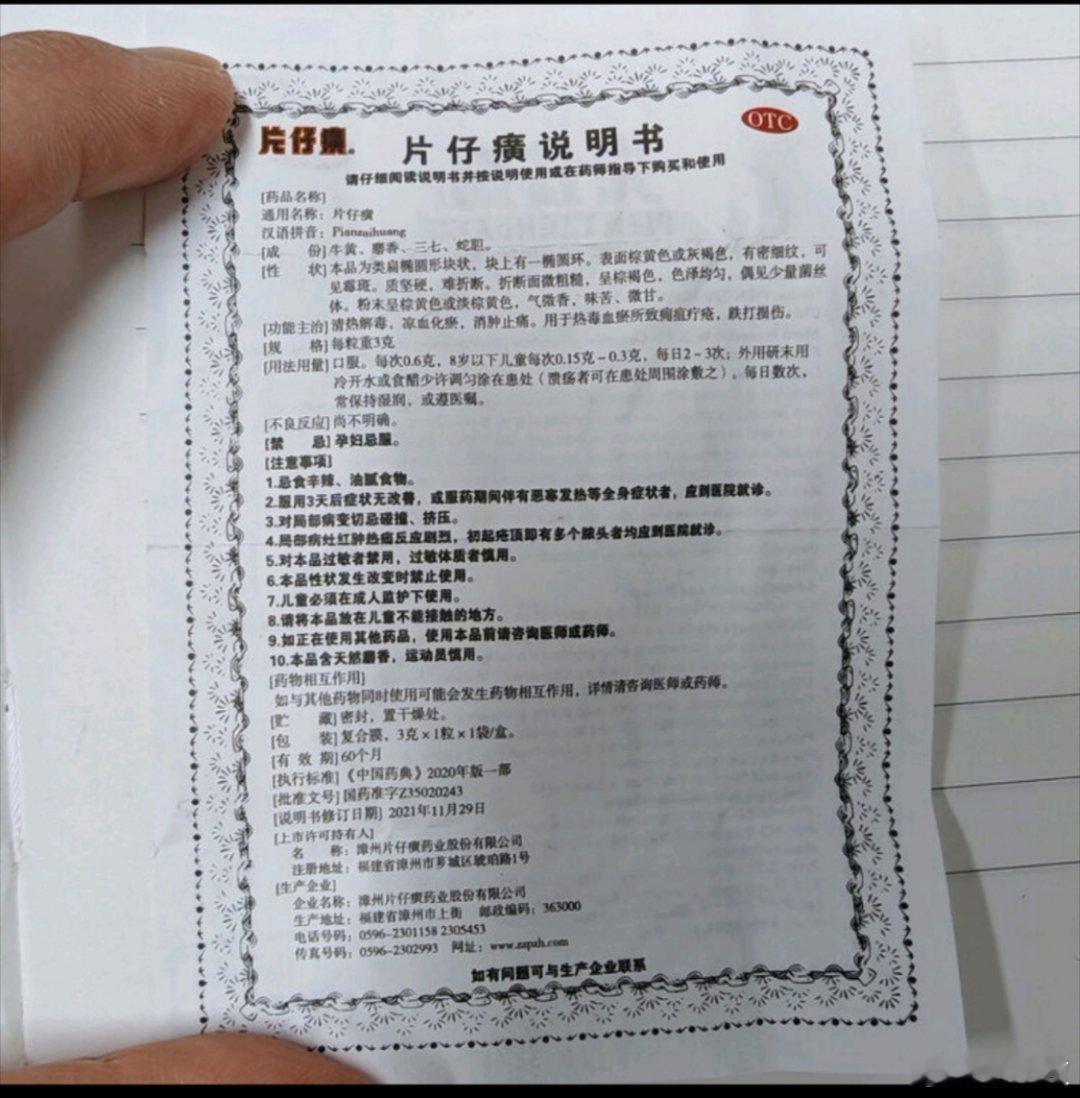 片仔癀
片仔癀说明书
OTC
请仔细阅读说明书并按说明使用或在药师指导下购买和使用
[药品名称]
通用名称：片仔癀
汉语拼音：Pianzaihuang
[成 份]牛黄、麝香、三七、蛇胆。
[性 状]本品为类扁椭圆形块状，块上有一椭圆环。表面棕黄色或灰褐色，有密细纹，可
见霉斑。质坚硬，难折断。折断面微粗糙，呈棕褐色，色泽均匀，偶见少量菌丝
体。粉末呈棕黄色或淡棕黄色，气微香，味苦、微甘。
[功能主治]清热解毒，凉血化瘀，消肿止痛。用于热毒血瘀所致痈疽疔疮，跌打损伤。
[规 格]每粒重3克
[用法用量]口服。每次0.6克，8岁以下儿童每次0.15克～0.3克，每日2～3次；外用研末用
冷开水或食醋少许调匀涂在患处（溃疡者可在患处周围涂敷之）。每日数次，
常保持湿润，或遵医嘱。
[不良反应]尚不明确。
[禁 忌]孕妇忌服。
[注意事项]
1.忌食辛辣、油腻食物。
2.服用3天后症状无改善，或服药期间伴有恶寒发热等全身症状者，应到医院就诊。
3.对局部病变切忌碰撞、挤压。
4.局部病灶红肿热痛反应剧烈，初起疮顶即有多个脓头者均应到医院就诊。
5.对本品过敏者禁用，过敏体质者慎用。
6.本品性状发生改变时禁止使用。
7.儿童必须在成人监护下使用。
8.请将本品放在儿童不能接触的地方。
9.如正在使用其他药品，使用本品前请咨询医师或药师。
10.本品含天然麝香，运动员慎用。
[药物相互作用]
如与其他药物同时使用可能会发生药物相互作用，详情请咨询医师或药师。
[贮 藏]密封，置干燥处。
[包 装]复合膜，3克×1粒×1袋/盒。
[有 效 期]60个月
[执行标准]《中国药典》2020年版一部
[批准文号]国药准字Z35020243
[说明书修订日期] 2021年11月29日
[上市许可持有人]
名 称：漳州片仔癀药业股份有限公司
注册地址：福建省漳州市芗城区琥珀路1号
[生产企业]
企业名称：漳州片仔癀药业股份有限公司
生产地址：福建省漳州市上街 邮政编码：363000
电话号码：0596-2301158 2305453
传真号码：0596-2302993 网址：www.zzpzh.com
如有问题可与生产企业联系